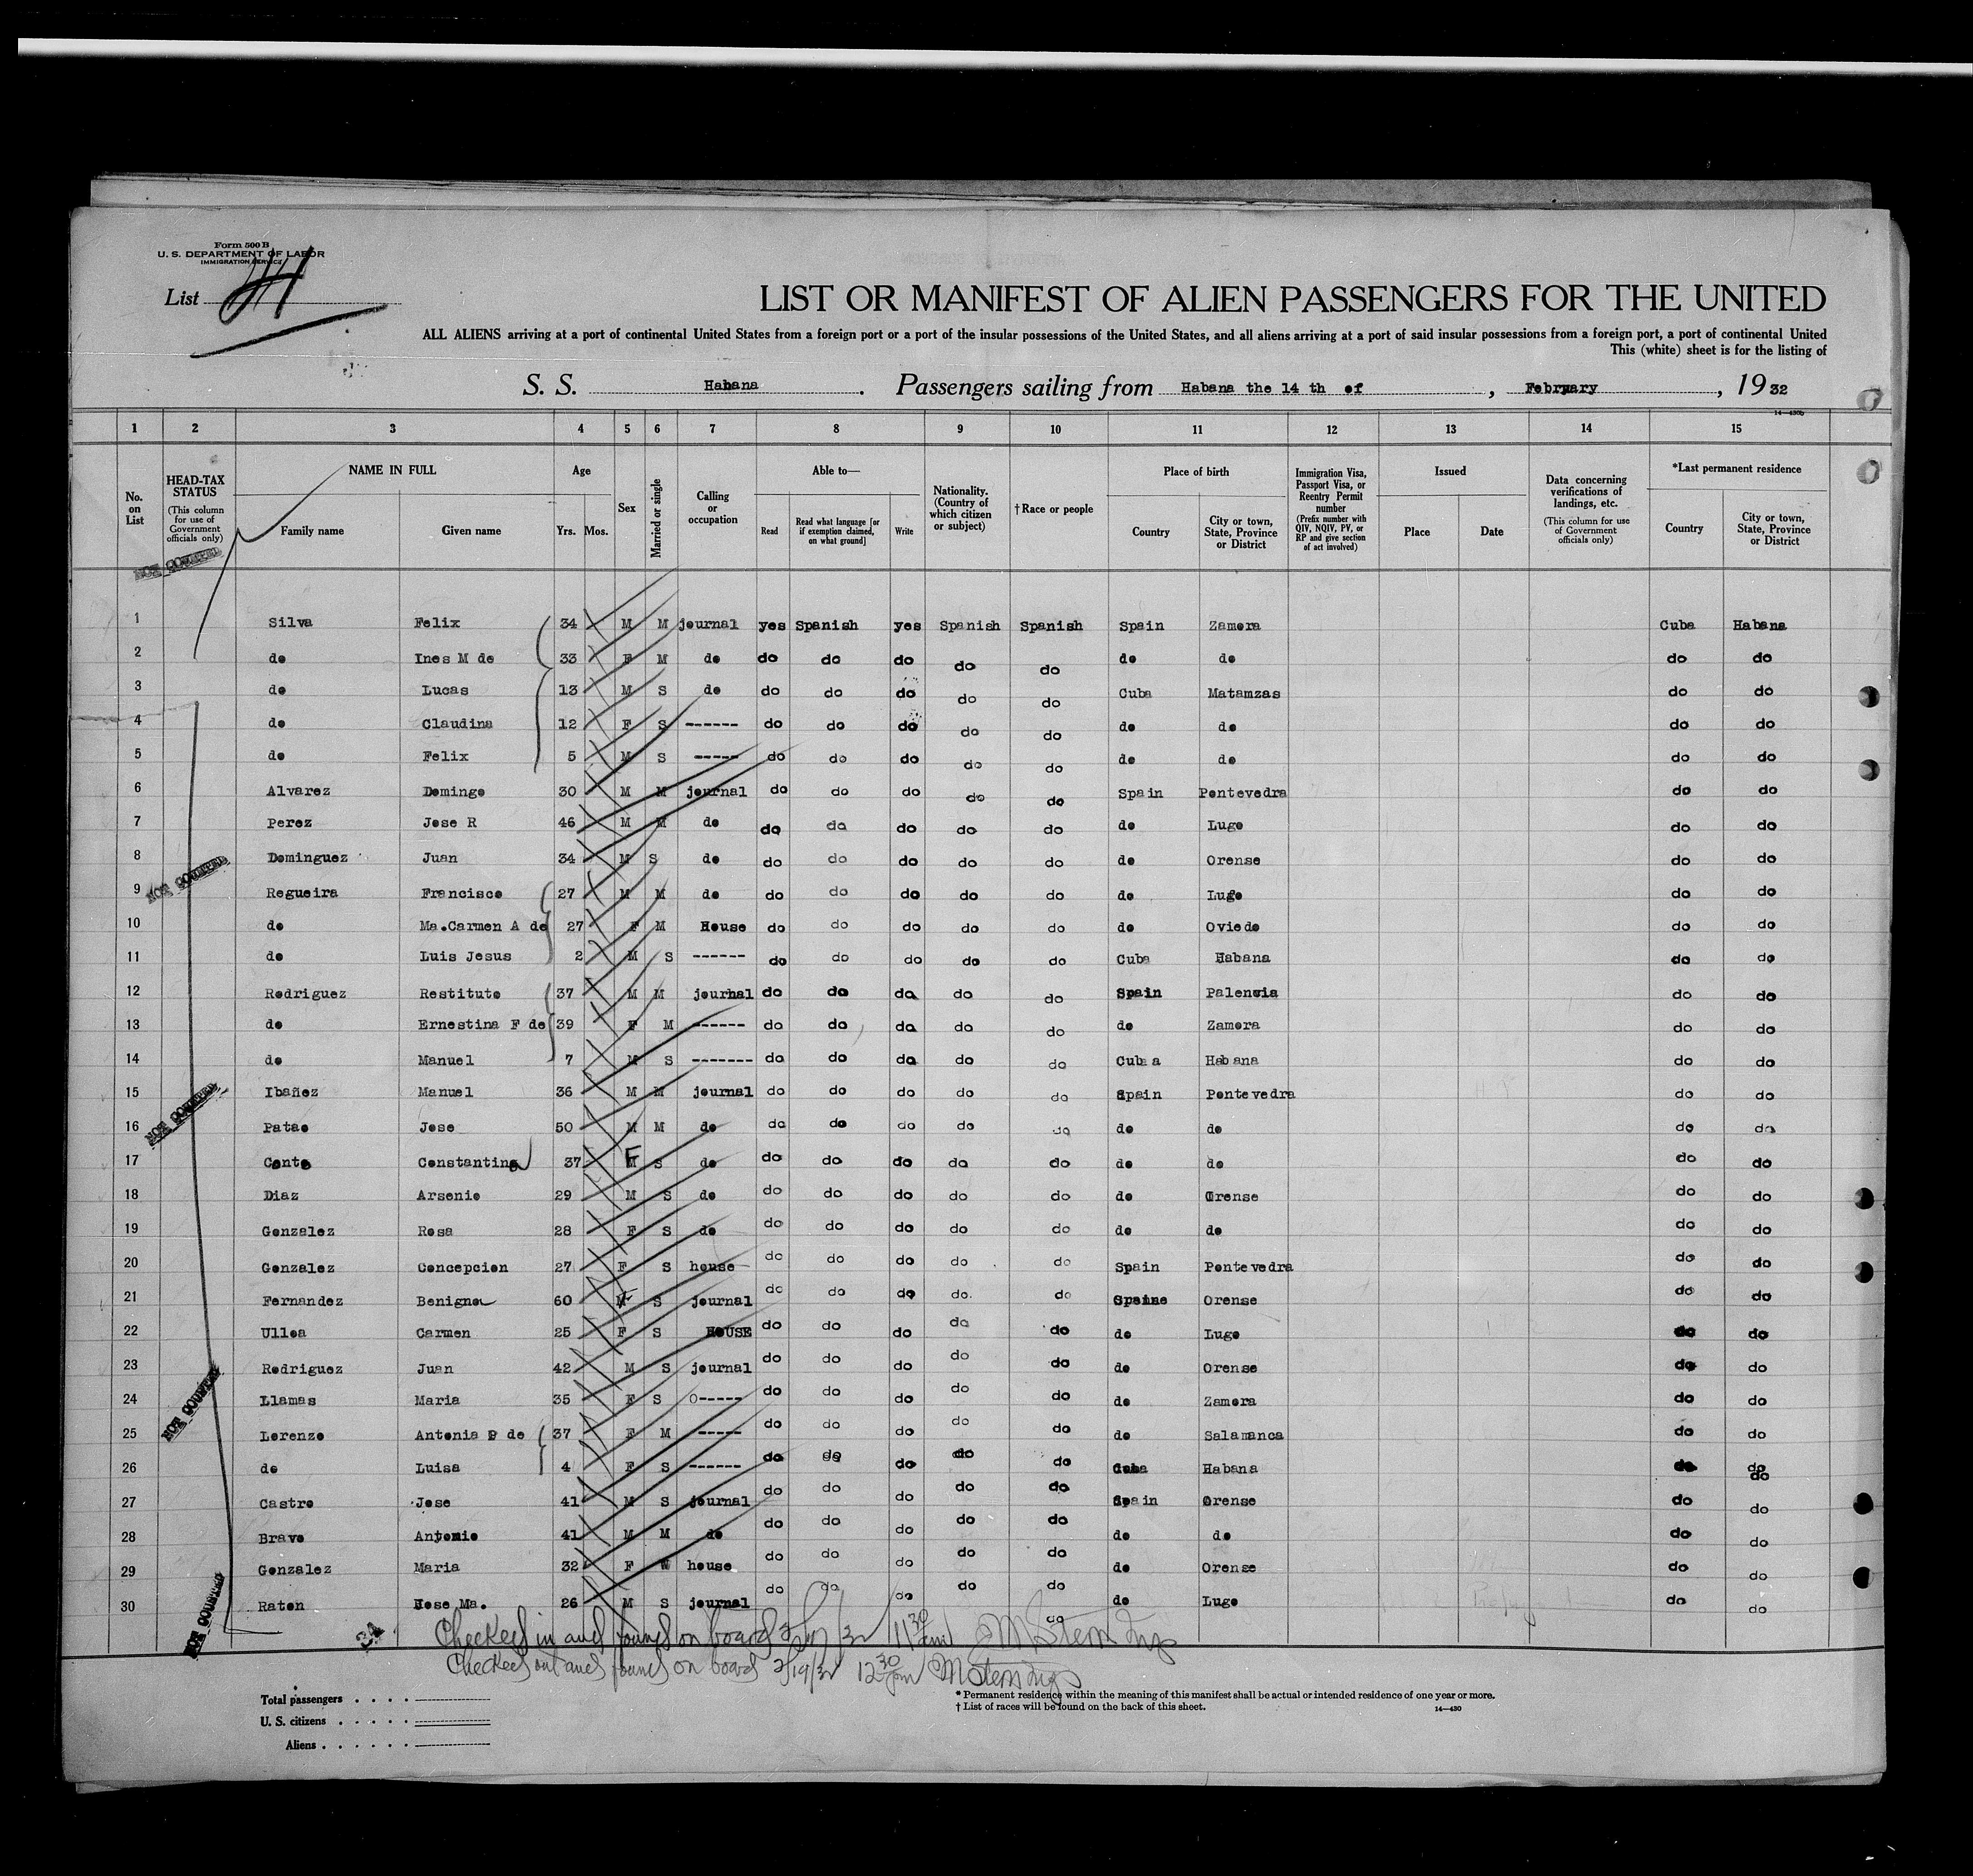 Form 500 B
U. S. DEPARTMENT OF LABOR
IMMIGRATION SERVICE
List
LIST OR MANIFEST OF ALIEN PASSENGERS FOR THE UNITED
ALL ALIENS arriving at a port of continental United States from a foreign port or a port of the insular possessions of the United States, and all aliens arriving at a port of said insular possessions from a foreign port, a port of continental United
This (white) sheet is for the listing of
S. S. Habana. Passengers sailing from Habana the 14 th of, February, 1932
14—430b
1 2 3 4 5 6 7 8 9 10 11 12 13 14 15
No. on List
HEAD-TAX STATUS (This column for use of Government officials only)
NAME IN FULL
Family name Given name
Age
Yrs. Mos.
Sex
Married or single
Calling or occupation
Able to—
Read Read what language [or if exemption claimed, on what ground] Write
Nationality. (Country of which citizen or subject)
†Race or people
Place of birth
Country City or town, State, Province or District
Immigration Visa, Passport Visa, or Reentry Permit number (Prefix number with QIV, NQIV, PV, or RP and give section of act involved)
Issued
Place Date
Data concerning verifications of landings, etc. (This column for use of Government officials only)
*Last permanent residence
Country City or town, State, Province or District
NOT COUNTED
1 Silva Felix 34 M M journal yes Spanish yes Spanish Spanish Spain Zamora Cuba Habana
2 do Ines M de 33 F M do do do do do do do do do do
3 do Lucas 13 M S do do do do do do Cuba Matamzas do do
4 do Claudina 12 F S ------ do do do do do do do do do
5 do Felix 5 M S ----- do do do do do do do do do
6 Alvarez Domingo 30 M M journal do do do do do Spain Pontevedra do do
7 Perez Jose R 46 M M do do do do do do do Lugo do do
8 Dominguez Juan 34 M S do do do do do do do Orense do do
NOT COUNTED
9 Regueira Francisco 27 M M do do do do do do do Lugo do do
10 do Ma.Carmen A de 27 F M House do do do do do do Oviedo do do
11 do Luis Jesus 2 M S ------ do do do do do Cuba Habana do do
12 Rodriguez Restituto 37 M M journal do do do do do Spain Palencia do do
13 do Ernestina F de 39 F M ------ do do do do do do Zamora do do
14 do Manuel 7 M S ------- do do do do do Cuba a Habana do do
15 Ibañez Manuel 36 M M journal do do do do do Spain Pontevedra do do
NOT COUNTED
16 Patao Jose 50 M M do do do do do do do do do do
17 Conto Constantina 37 F S do do do do do do do do do do
18 Diaz Arsenio 29 M S do do do do do do do Orense do do
19 Gonzalez Rosa 28 F S do do do do do do do do do do
20 Gonzalez Concepcion 27 F S house do do do do do Spain Pontevedra do do
21 Fernandez Benigna 60 F S journal do do do do do Spaine Orense do do
22 Ulloa Carmen 25 F S HOUSE do do do do do do Lugo do do
23 Rodriguez Juan 42 M S journal do do do do do do Orense do do
24 Llamas Maria 35 F S 0----- do do do do do do Zamora do do
NOT COUNTED
25 Lorenzo Antonia P de 37 F M ----- do do do do do do Salamanca do do
26 do Luisa 4 F S ------ do do do do do Cuba Habana do do
do
27 Castro Jose 41 M S journal do do do do do Spain Orense do do
28 Bravo Antonio 41 M M do do do do do do do do do do
29 Gonzalez Maria 32 F W house do do do do do do Orense do do
30 Raton Jose Ma. 26 M S journal do do do do do do Lugo do do
NOT COUNTED
Checked in and found on board 11 30 M Stern Insp
Checked out and found on board 2/19/32 12 30 pm M Stern Insp
Total passengers . . . .
U. S. citizens . . . . .
Aliens . . . . . .
* Permanent residence within the meaning of this manifest shall be actual or intended residence of one year or more.
† List of races will be found on the back of this sheet.
14—430